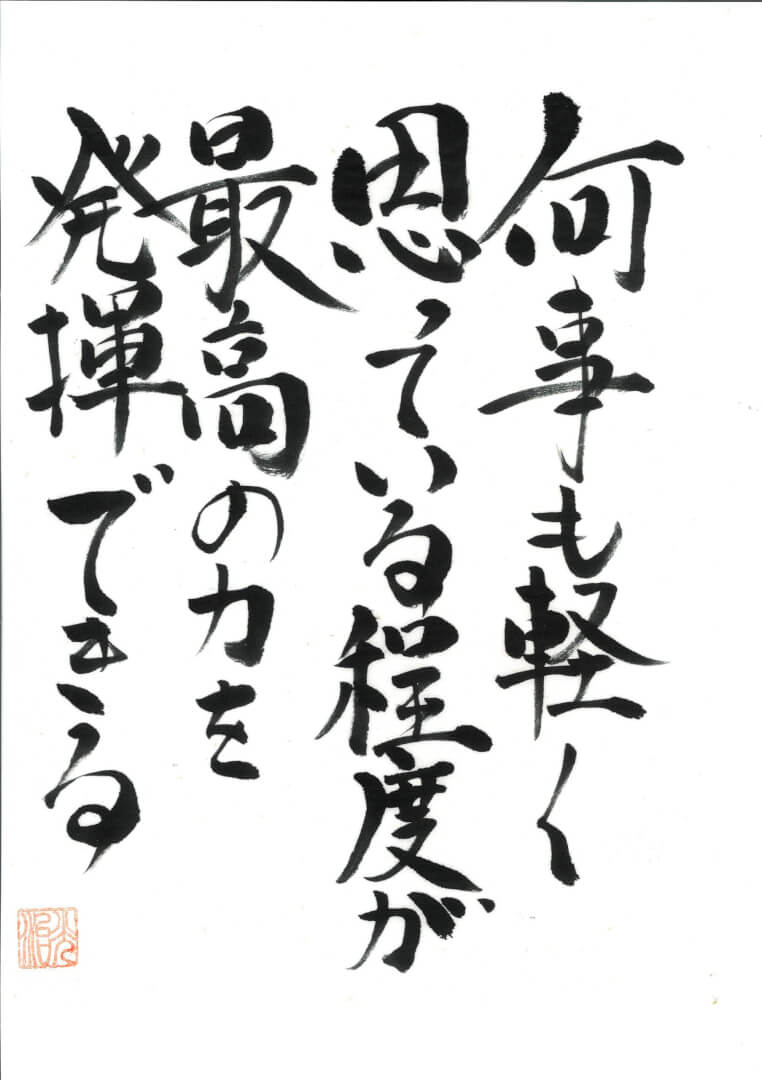 何事も軽く
思っている程度が
最高の力を
発揮できる